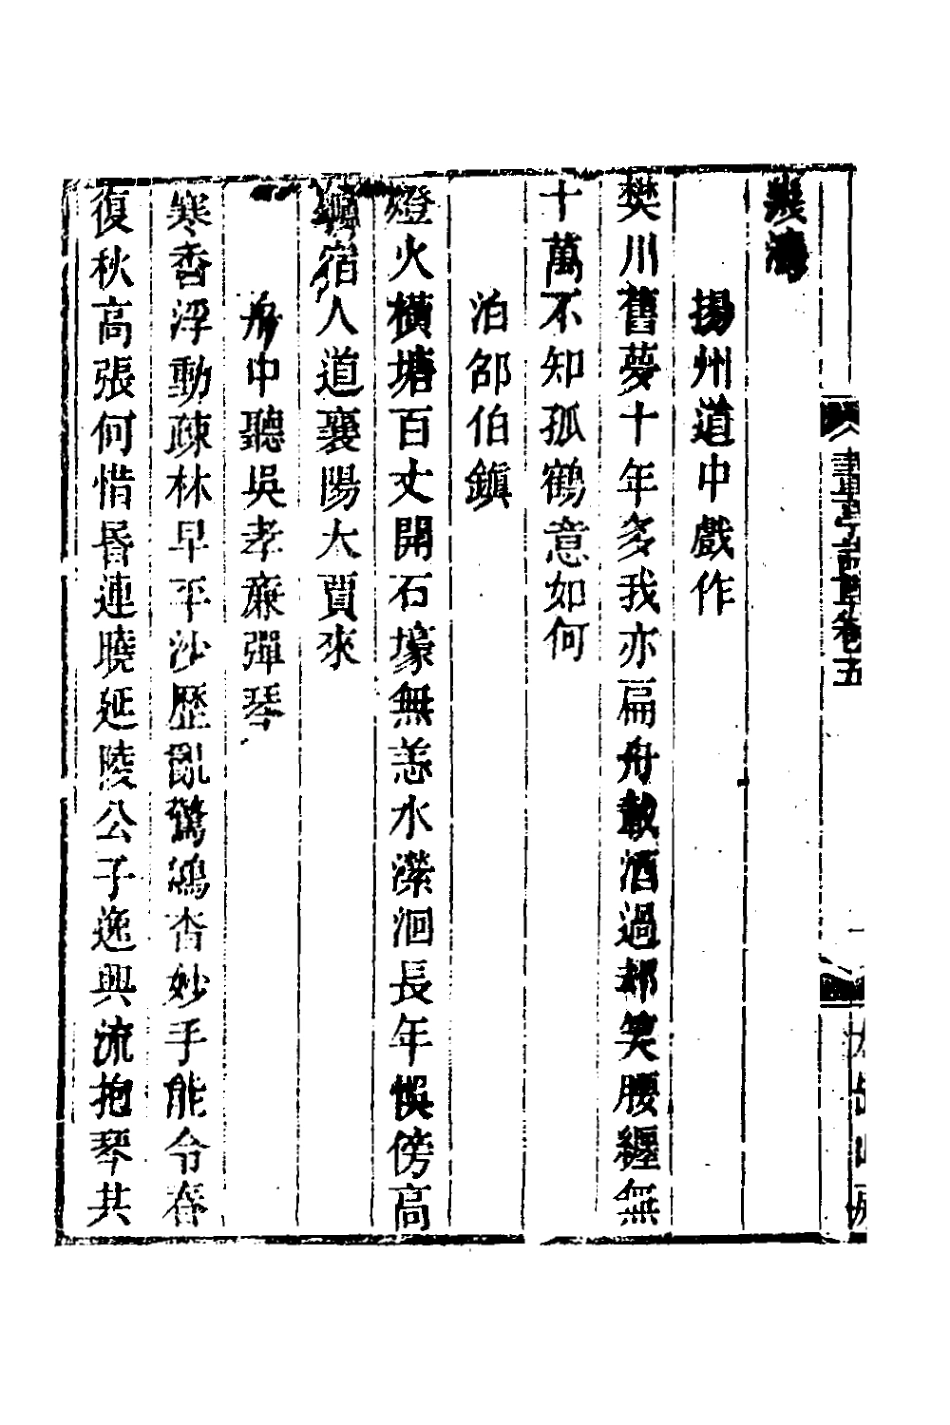 揚州道中戲作
樊川舊夢十年多我亦扁舟載酒過却笑腰纏無
十萬不知孤鶴意如何
泊邵伯鎮
燈火橫塘百丈開石壕無恙水濚洄長年悞傍高
宿人道襄陽大賈來
舟中聽吳孝廉彈琴
寒香浮動疎林早平沙歷亂驚鴻杳妙手能令春
復秋高張何惜昏連曉延陵公子逸興流抱琴共
卷五